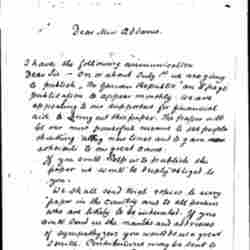 Dear Mrs Addams.
I have the following communication
Dear Sir - On or about July 1st we are going
to publish, The German Republic an 8 page
publication to appear monthly. We are
appealing to our supporters for financial
aid to bring out this paper. The paper will
be our most powerful means to set people
thinking along new lines and to gain new
adherents to our great cause.
If you could help us to publish the
paper we would be deeply obliged to
you.
We shall send trial copies to every
paper in the country and to all persons
who are likely to be interested. If you
could send us the names and addresses
of sympathizers you would do us a great
service. Contributions may be sent to